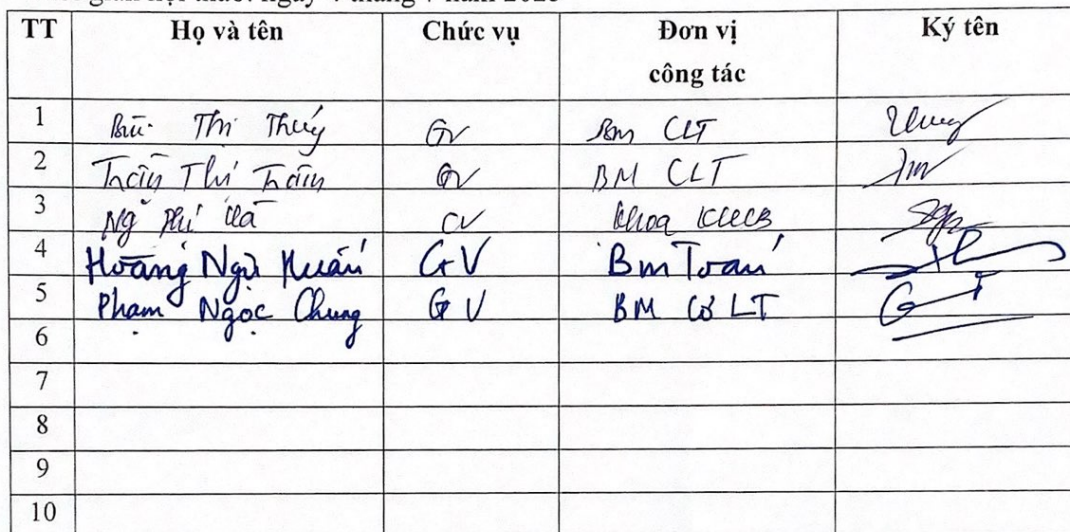 TT Họ và tên Chức vụ Đơn vị công tác Ký tên
1 Bùi Thị Thúy GV Bm CLT
2 Trần Thị Trâm GV BM CLT
3 Ng Phí CV Khoa KHCB
4 Hoàng Ngự Huấn GV Bm Toán
5 Phạm Ngọc Chung GV BM Cơ LT
6
7
8
9
10